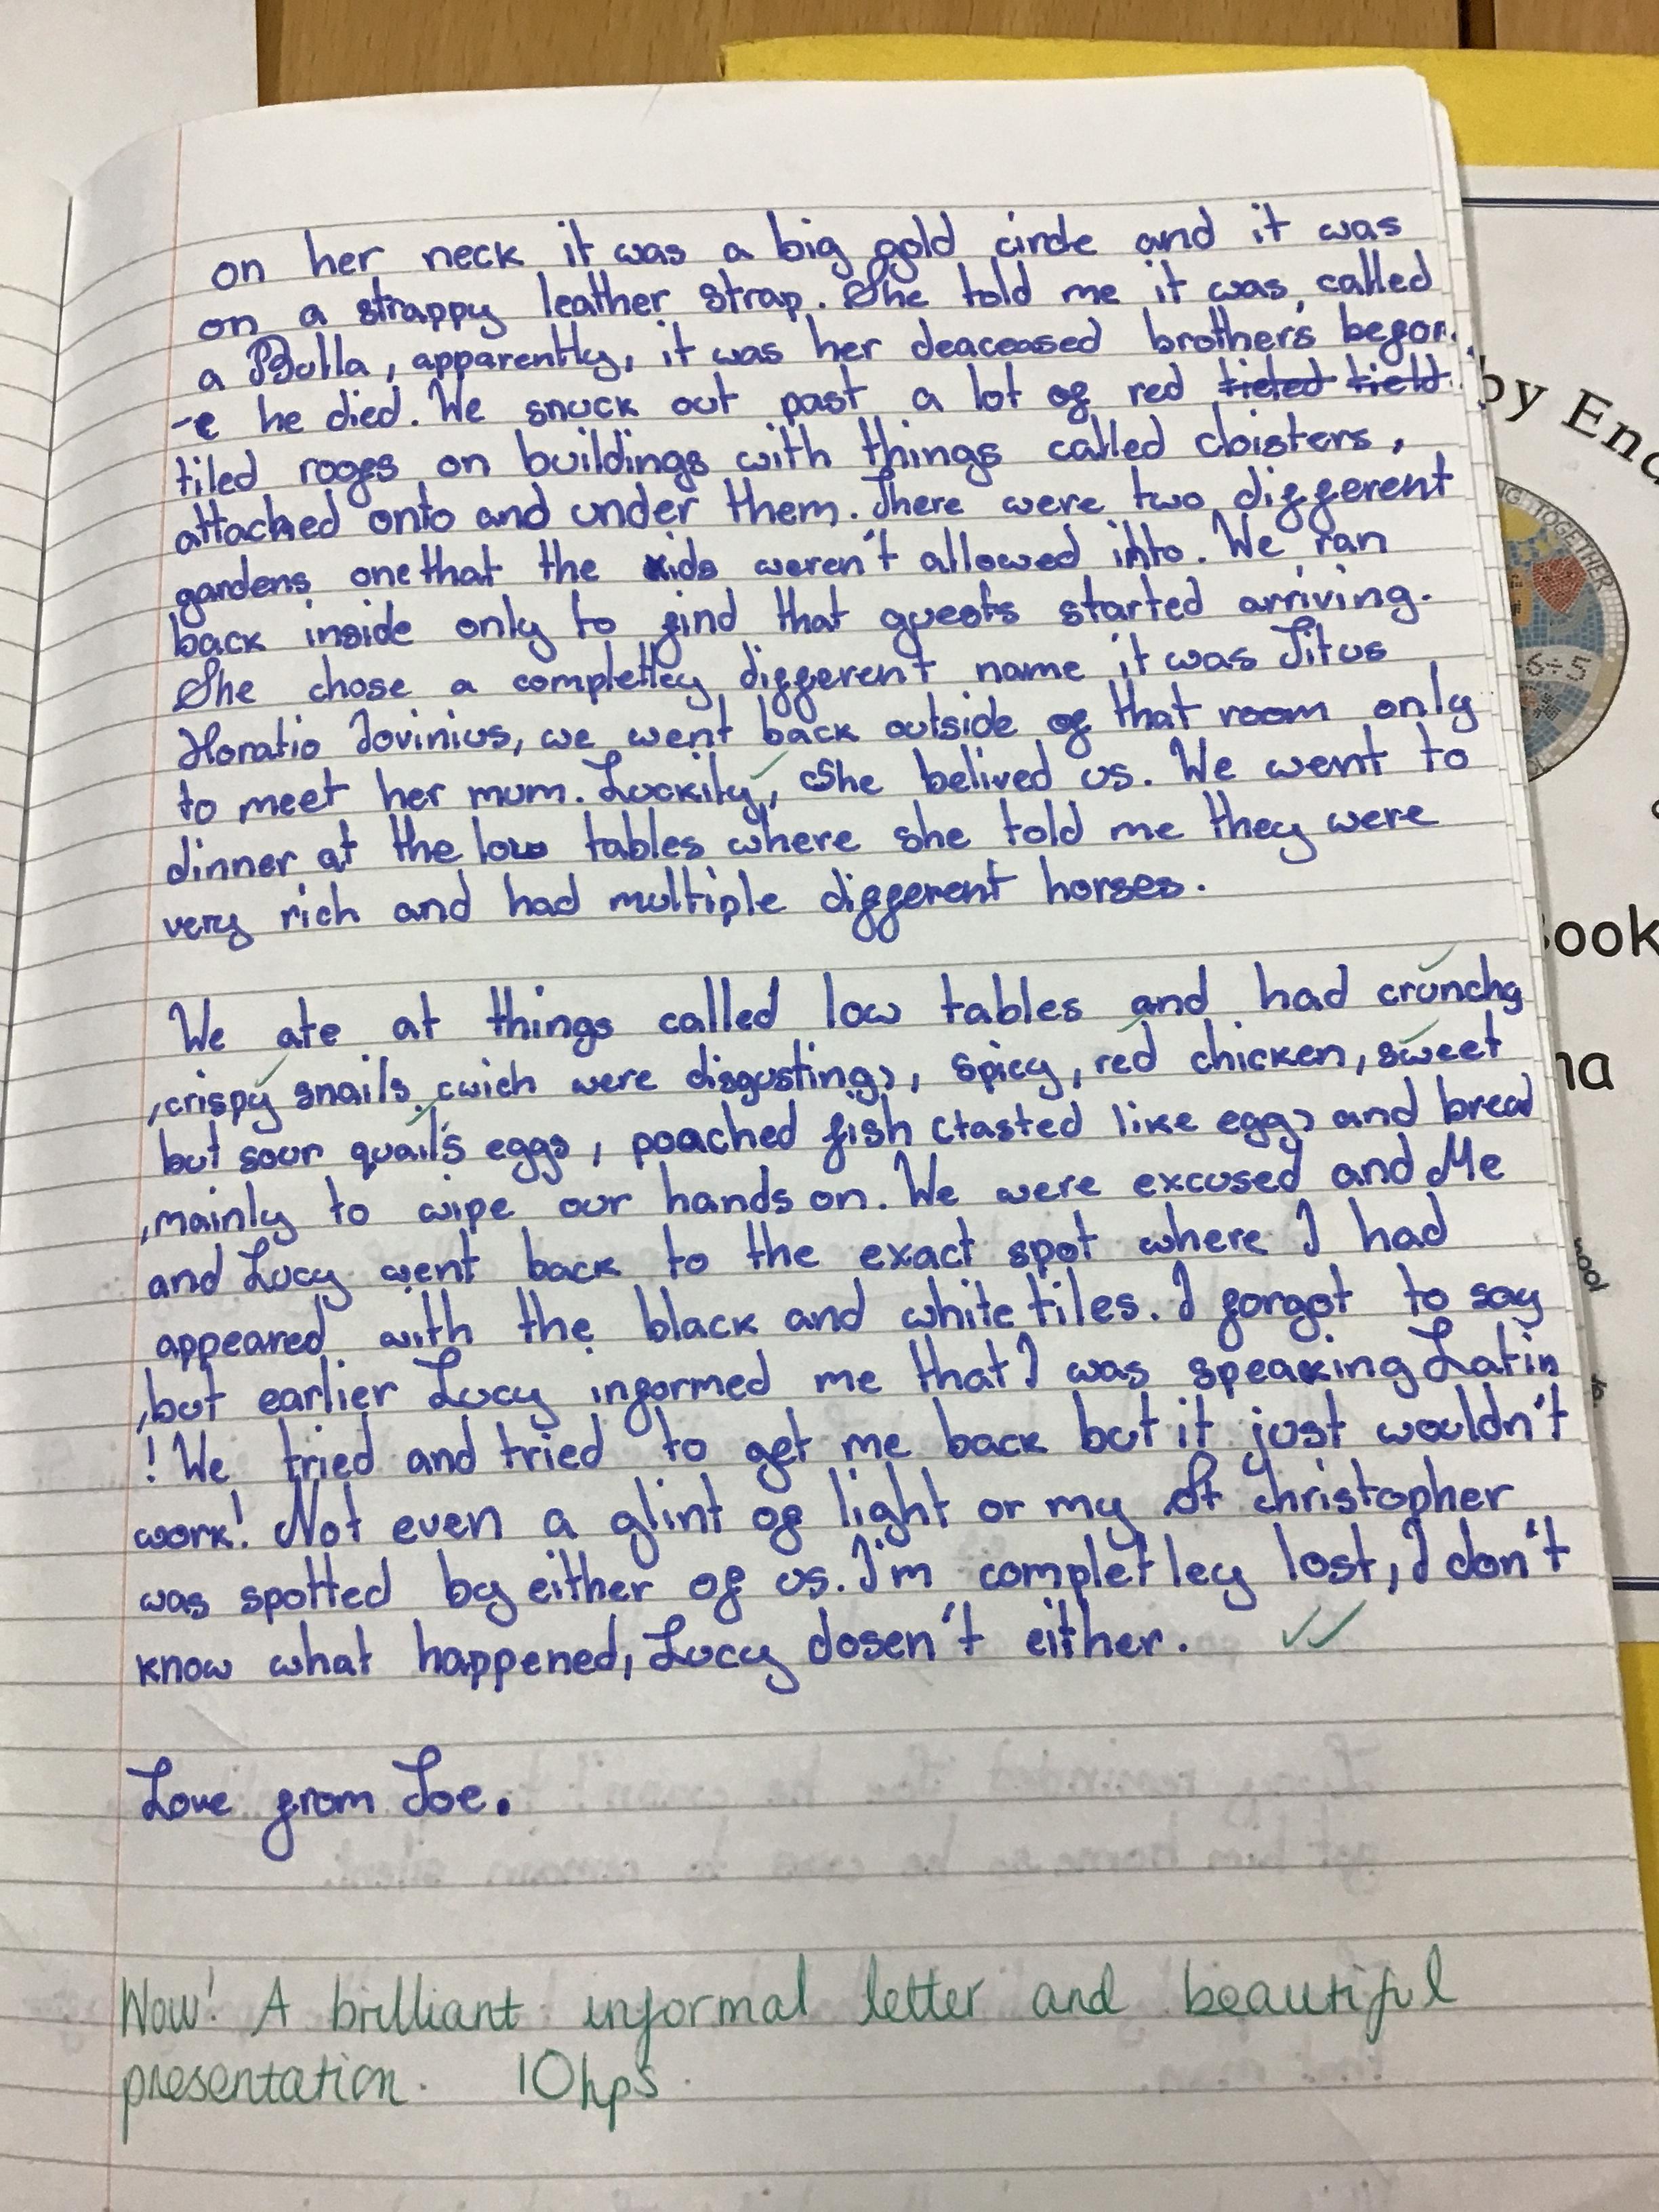 on her neck it was a big gold circle and it was
on a strappy leather strap. She told me it was called
a Bulla, apparently, it was her deaceased brother's befor
-e he died. We snuck out past a lot of red tieted tield
tiled roofs on buildings with things called cloisters,
attached onto and under them. There were two different
gardens one that the kids weren't allowed into. We ran
back inside only to find that guests started arriving.
She chose a completley different name it was Titus
Horatio Jovinius, we went back outside of that room only
to meet her mum. Luckily, She belived us. We went to
dinner at the low tables where she told me they were
very rich and had multiple different horses.
We ate at things called low tables and had crunchy
,crispy snails (wich were disgusting), spicy, red chicken, sweet
but sour quail's eggs, poached fish (tasted like egg) and bread
,mainly to wipe our hands on. We were excused and Me
and Lucy went back to the exact spot where I had
appeared with the black and white tiles. I forgot to say
,but earlier Lucy informed me that I was speaking Latin
! We tried and tried to get me back but it just wouldn't
work! Not even a glint of light or my St Christopher
was spotted by either of us. I'm completley lost, I don't
know what happened, Lucy dosen't either.
Love from Joe.
Wow! A brilliant informal letter and beautiful
presentation. 10hps.
by End
NG TOGETHER
-6÷5
ook
na
ool